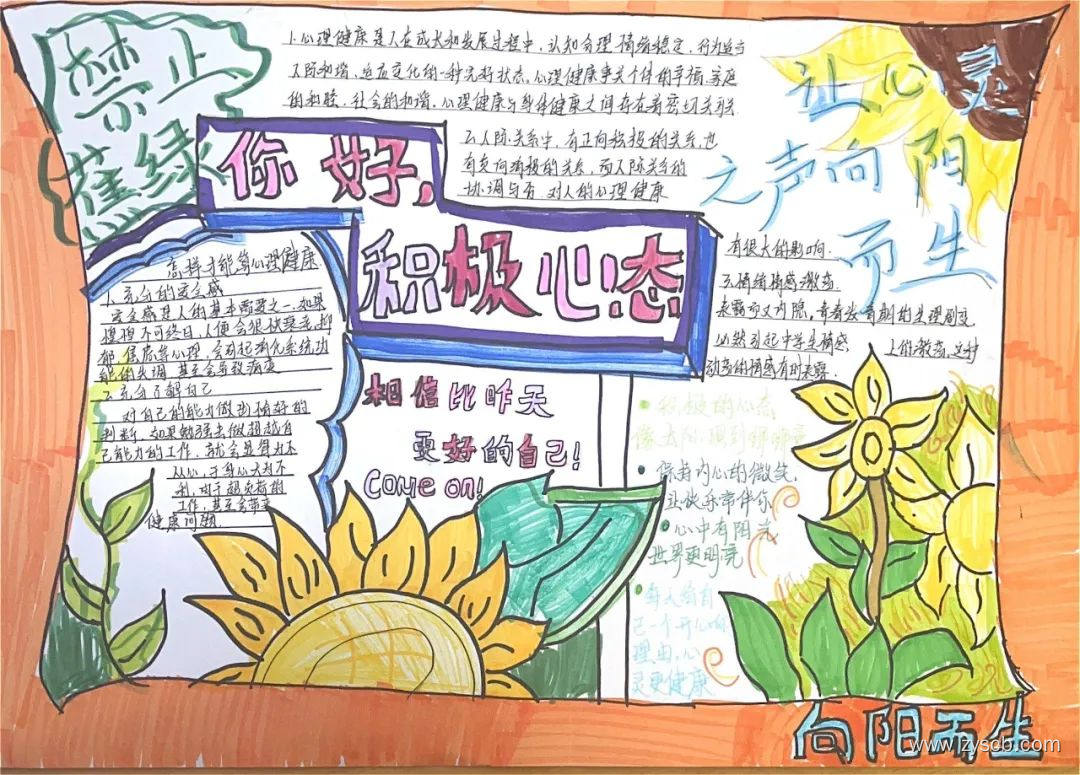 禁止
蕉绿
1.心理健康是人在成长和发展过程中，认知合理情绪稳定，行为适当
人际和谐，适应变化的一种完好状态。心理健康事关个体的幸福，家庭
的和睦，社会的和谐。心理健康与身体健康之间存在着密切关联
2.人际关系中，有正向积极的关系，也
有负向消极的关系，而人际关系的
协调与否 对人的心理健康
有很大的影响.
让心灵
之声向阳
而生
你好，
积极心态
3.情绪情感激荡
来露而又外隐，青春发育期的生理剧变
必然引起中学生情感
上的激荡，这种
动荡的情感有时表露
怎样才能算心理健康
1.充分的安全感
安全感是人的基本需要之一.如果
惶惶不可终日，人便会很快衰老，抑
郁、焦虑等心理，会引起消化系统功
能的失调，甚至会导致病变
2.充分了解自己
对自己的能力做出恰好的
判断，如果勉强去做超越自
己能力的工作，就会显得力不
从心，于身心大为不
利，由于超负荷的
工作，甚至会带来
健康问题.
相信比昨天
更好的自己！
Come on!
积极的心态
像太阳，照到哪哪亮
保持内心的微笑，
让快乐常伴你
心中有阳光
世界更明亮
每天给自
己一个开心的
理由，心
灵更健康
向阳而生
www.lzyscb.com